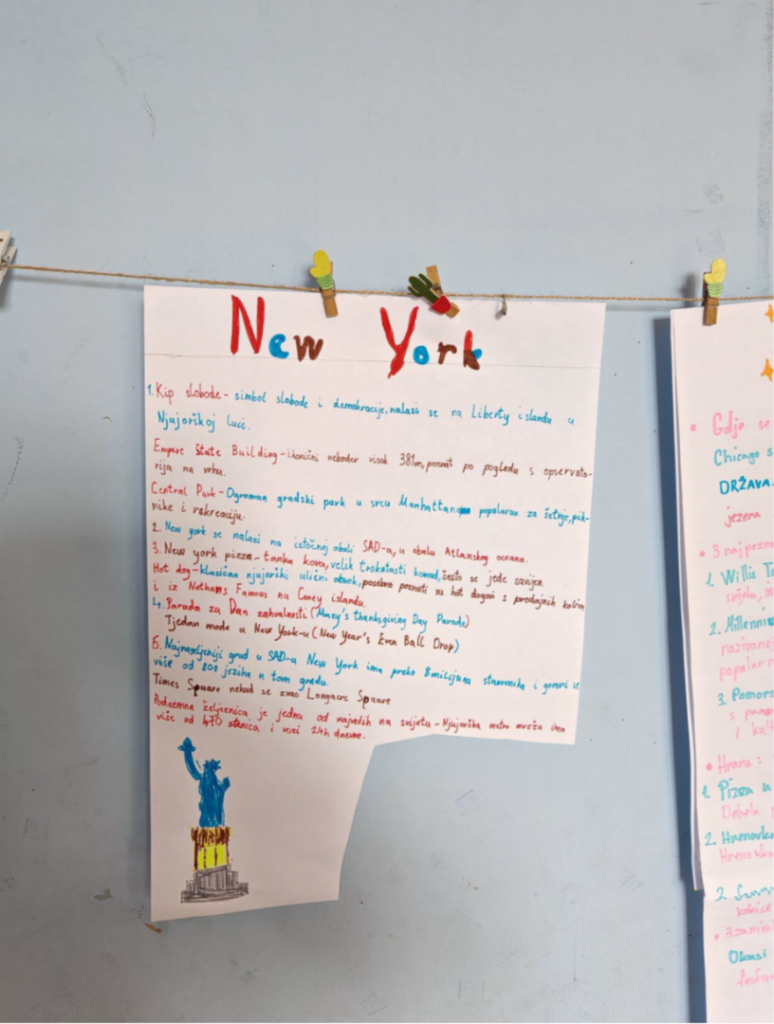 New York
1. Kip slobode - simbol slobode i demokracije, nalazi se na Liberty islandu u
Njujorškoj luci.
Empire State Building - ikonični neboder visok 381m, poznat po pogledu s opservato-
rija na vrhu.
Central Park - Ogroman gradski park u srcu Manhattana popularan za šetnje, pik-
nike i rekreaciju.
2. New york se nalazi na istočnoj obali SAD-a, u obalu Atlanskog oceana.
3. New york pizza - tanka kora, velik trokutasti komad, često se jede savijen.
Hot dog - klasičan njujorški ulični obrok, posebno poznati su hot dogovi s prodajnih kolica
i iz Nathans Famous na Coney islandu.
4. Parada za Dan zahvalnosti (Macy's thanksgiving Day Parade)
Tjedan mode u New York-u (New Year's Even Ball Drop)
5. Najnaseljeniji grad u SAD-u New York ima preko 8 milijuna stanovnika i govori se
više od 800 jezika u tom gradu.
Times Square nekad se zvao Longacre Square
Podzemna željeznica je jedna od najvećih na svijetu - Njujorška metro mreža ima
više od 470 stanica i vozi 24h dnevno.
Gdje se
Chicago s
DRŽAVA.
jezera
1. Willis To
svijeta,
2. Millenniu
popular
3. Pomors
s pano
i kult
Hrana:
1. Pizza u
Debela
2. Hrenovk
Hrenovka
2.